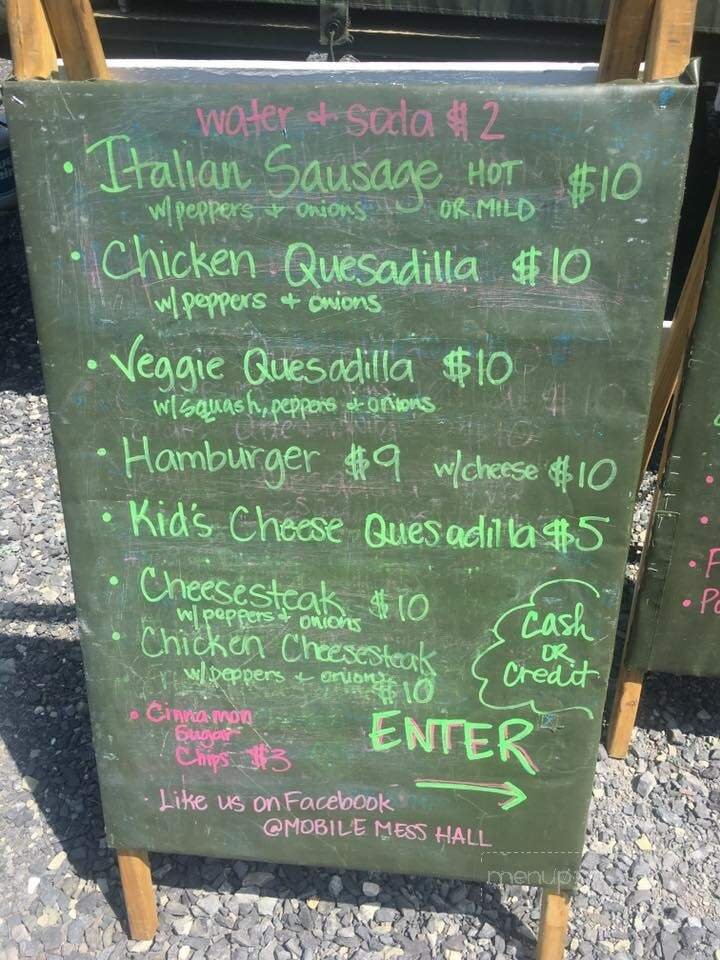 water + soda $2
• Italian Sausage HOT $10
w/peppers + onions OR MILD
• Chicken Quesadilla $10
w/peppers + onions
• Veggie Quesadilla $10
w/squash, peppers + onions
• Hamburger $9 w/cheese $10
• Kid's Cheese Quesadilla $5
• Cheesesteak $10
w/peppers + onions
• Chicken Cheesesteak
w/peppers + onions
$10
Cash
OR
Credit
• Cinnamon
Sugar
Chips $3
ENTER
Like us on Facebook
@MOBILE MESS HALL
menup